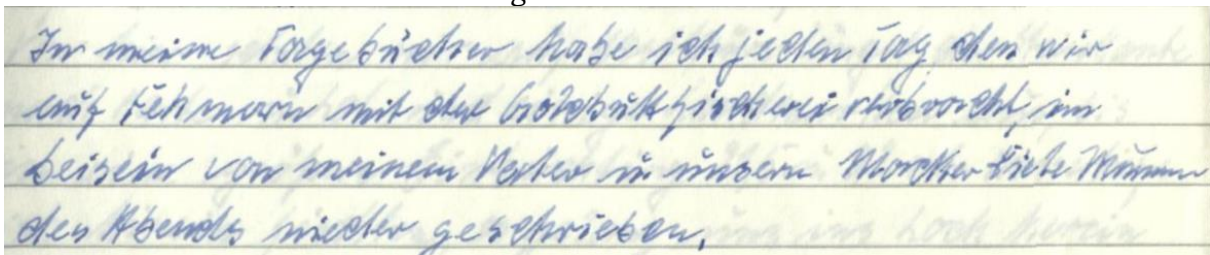 In meine Tagebücher habe ich jeden Tag den wir
auf Fehmarn mit der Goldbuttfischerei verbracht, im
beisein von meinem Vater u. unsern Macker
des Abends nieder geschrieben.